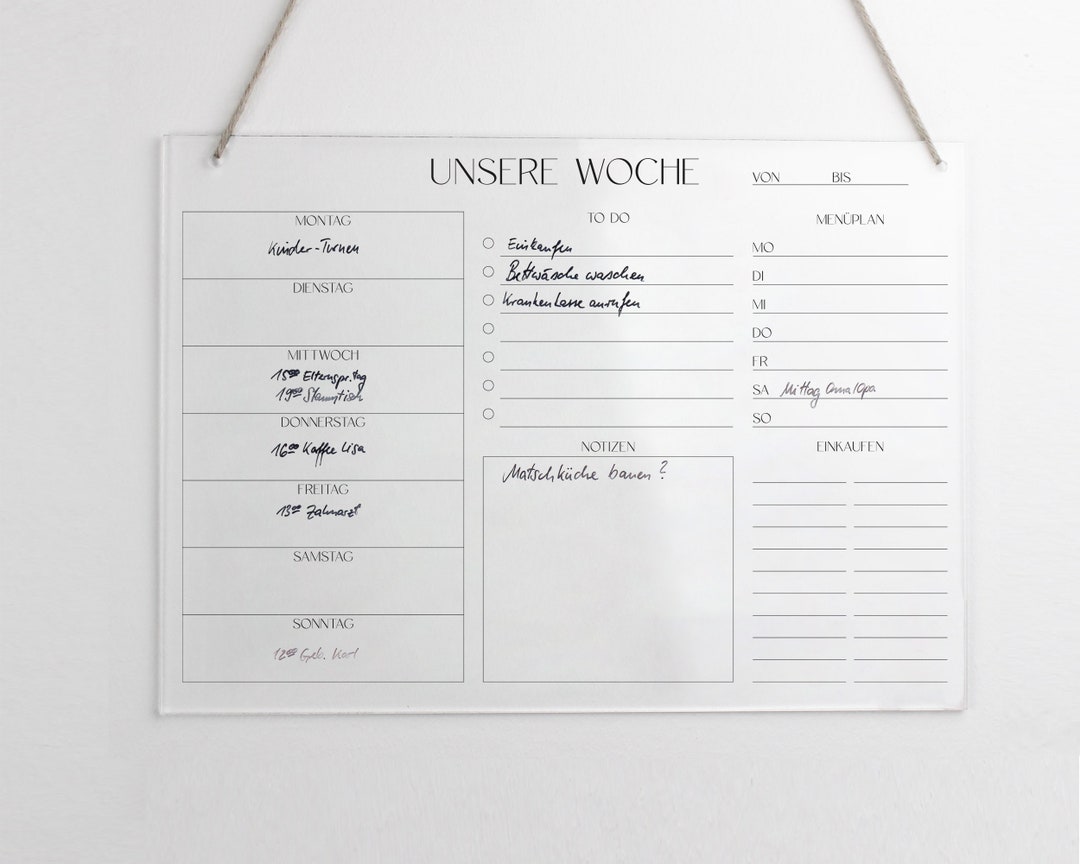 UNSERE WOCHE
VON BIS
MONTAG
Kinder-Turnen
DIENSTAG
MITTWOCH
15⁰⁰ Elternspr.tag
19⁰⁰ Stammtisch
DONNERSTAG
16⁰⁰ Kaffee Lisa
FREITAG
13⁰⁰ Zahnarzt
SAMSTAG
SONNTAG
12⁰⁰ Geb. Karl
TO DO
Einkaufen
Bettwäsche waschen
Krankenkasse anrufen
NOTIZEN
Matschküche bauen?
MENÜPLAN
MO
DI
MI
DO
FR
SA Mittag Oma/Opa
SO
EINKAUFEN